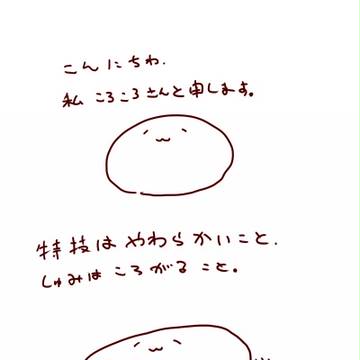 こんにちわ.
私 ころころさんと申します。
特技は やわらかいこと.
しゅみは ころがる こと。